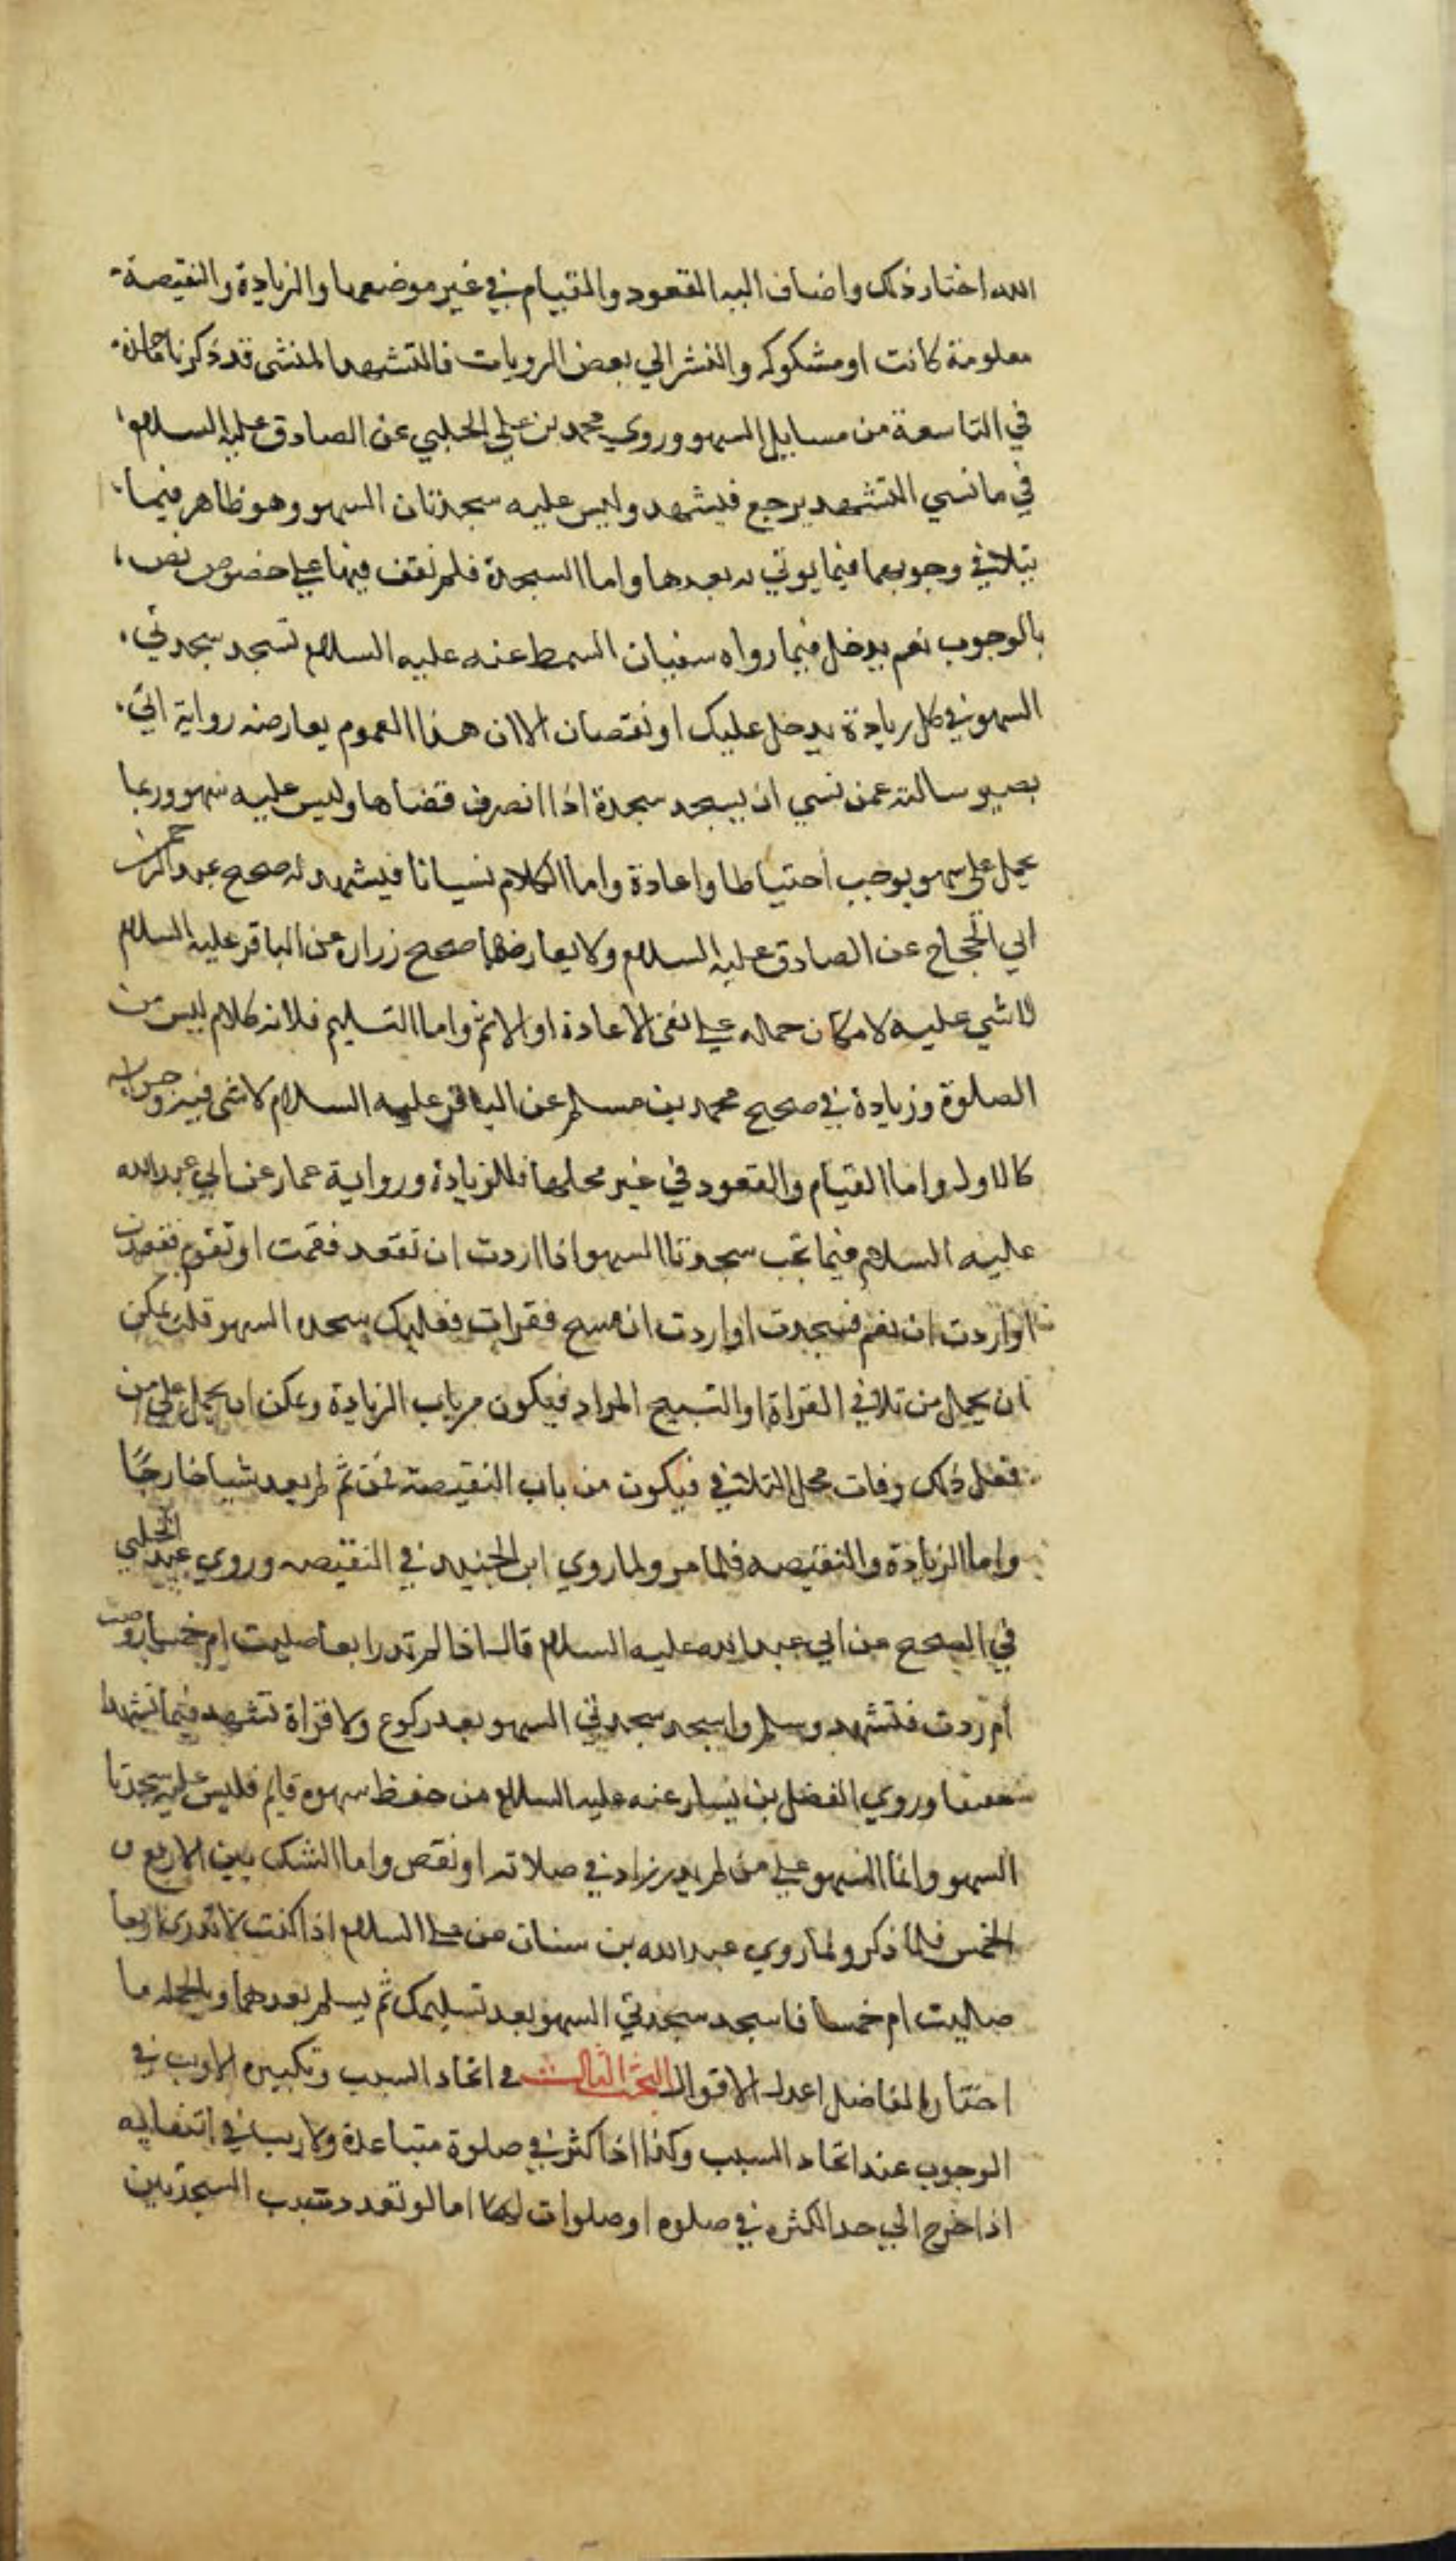 الله اختار ذلك واضاف اليه القعود والقيام في غير موضعهما والزيادة والنقيصة
معلومة كانت او مشكوكه والنشر الي بعض الرويات فالتشهد المنشي قد ذكرناهانه
في التاسعة من مسايل السهو وروي محمد بن علي الحلبي عن الصادق عليه السلام
في ما نسي التشهد يرجع فيشهد وليس عليه سجدتان السهو وهو ظاهر فيما
بتلاثي وجوبهما فيما يوتي به بعدها واما السجدة فلم نقف فيها علي خصوص نص
بالوجوب نعم يدخل فيما رواه سفيان السمط عنه عليه السلام تسجد سجدتي
السهو في كل ريادة يدخل عليك او نقصان الا ان هذا العموم يعارضه رواية ابي
بصير سالته عمن نسي ان يسجد سجدة اذا انصرف قضاها وليس عليه سهو وربما
يحمل علي سهو يوجب احتياطا واعادة واما الكلام نسيانا فيشهد له صحيح عبد الرحمن
ابي الحجاج عن الصادق عليه السلام ولا يعارضهما صحيح زراره عن الباقر عليه السلام
لا شي عليه لامكان حماله علي نفي الاعادة او الاثم واما التسليم فلانه كلام ليس من
الصلوة وزيادة في صحيح محمد بن مسلم عن الباقر عليه السلام لا شي فيه وجوابه
كالاول واما القيام والقعود في غير محلهما فللزيادة ورواية عمار عن ابي عبد الله
عليه السلام فيما تجب سجدتا السهو اذا اردت ان تقعد فقمت او تقوم فقعدت
او اردت ان تقم فسجدت او اردت ان تسبح فقرات فعليك سجده السهو قلت يمكن
ان يحمل من تلاثي القراة او التسبيح المراد فيكون من باب الزيادة ويمكن ان يحمل علي من
فعل ذلك وفات محل التلاثي فيكون من باب النقيصة فمن ثم لم يعد شيا خارجًا
واما الزيادة والنقيصه فلما مر ولما روي ابن الجنيد في النقيصه وروي عبيد الحلبي
في الصحيح عن ابي عبد الله عليه السلام قال اذا لم تدر ا ربعا صليت ام خمسا نقصت
ام زدت فتشهد وسلم واسجد سجدتي السهو بعد ركوع ولا قراة تتشهد فيما تشهدا
خفيفا وروي الفضل بن يسار عنه عليه السلام من حفظ سهوه قايم فليس عليه سجدتا
السهو وانما السهو علي من لم يدر زاد في صلاته او نقص واما الشك بين الاربع و
الخمس فلما ذكر ولما روي عبد الله بن سنان عن عليه السلام اذا كنت لا تدري اربعا
صليت ام خمسا فاسجد سجدتي السهو بعد تسليمك ثم يسلم بعدهما وبالجملة ما
اختاره الفاضل اعدل الاقوال البحث الثالث في اتحاد السبب وتكبيره لا ريب في
الوجوب عند اتحاد السبب وكذا اذا كثر في صلوة متباعدة ولا ريب في انتفايه
اذا خرج الي حد الكثره في صلوه او صلوات اما لو تعدد سبب السجدتين